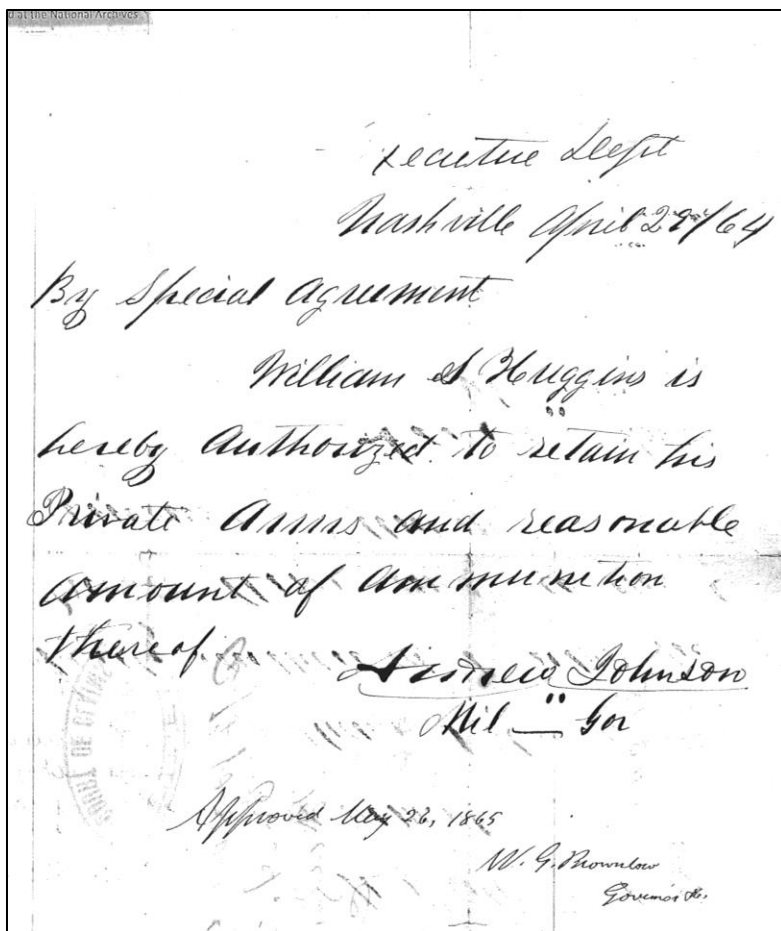 d at the National Archives
xecutive Dept
Nashville April 22/64
By Special Agreement
William S Huggins is
hereby Authorized to retain his
Private Arms and reasonable
amount of ammunition
thereof.
Andrew Johnson
Mil — Gov
Approved May 26, 1865
W. G. Brownlow
Governor &c.